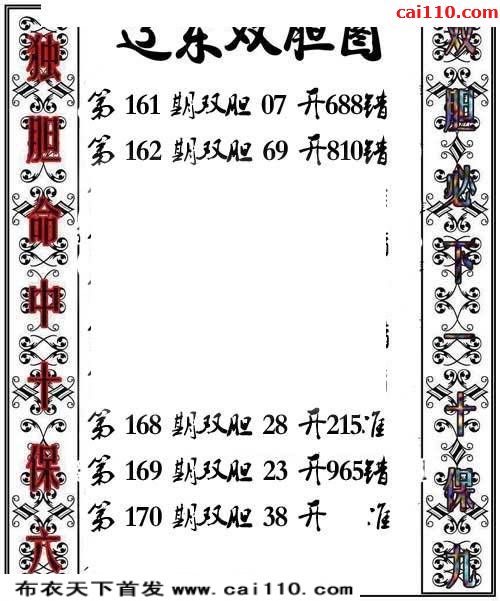 cai110.com
辽东双胆图
独胆命中十保六
第 161 期双胆 07 开688错
第 162 期双胆 69 开810错
第 168 期双胆 28 开215准
第 169 期双胆 23 开965错
第 170 期双胆 38 开 准
双胆必下一十保九
布衣天下首发 www.cai110.com